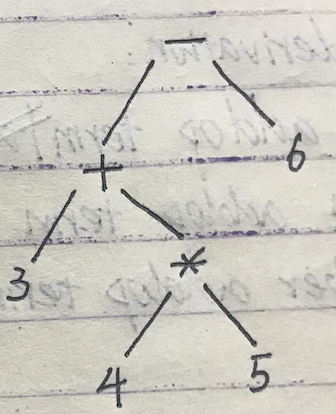 −
+ 6
3 *
4 5